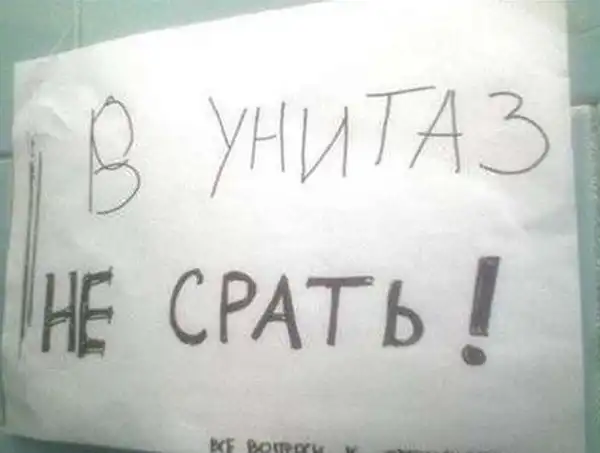 В УНИТАЗ
НЕ СРАТЬ!
ВСЕ ВОПРОСЫ К